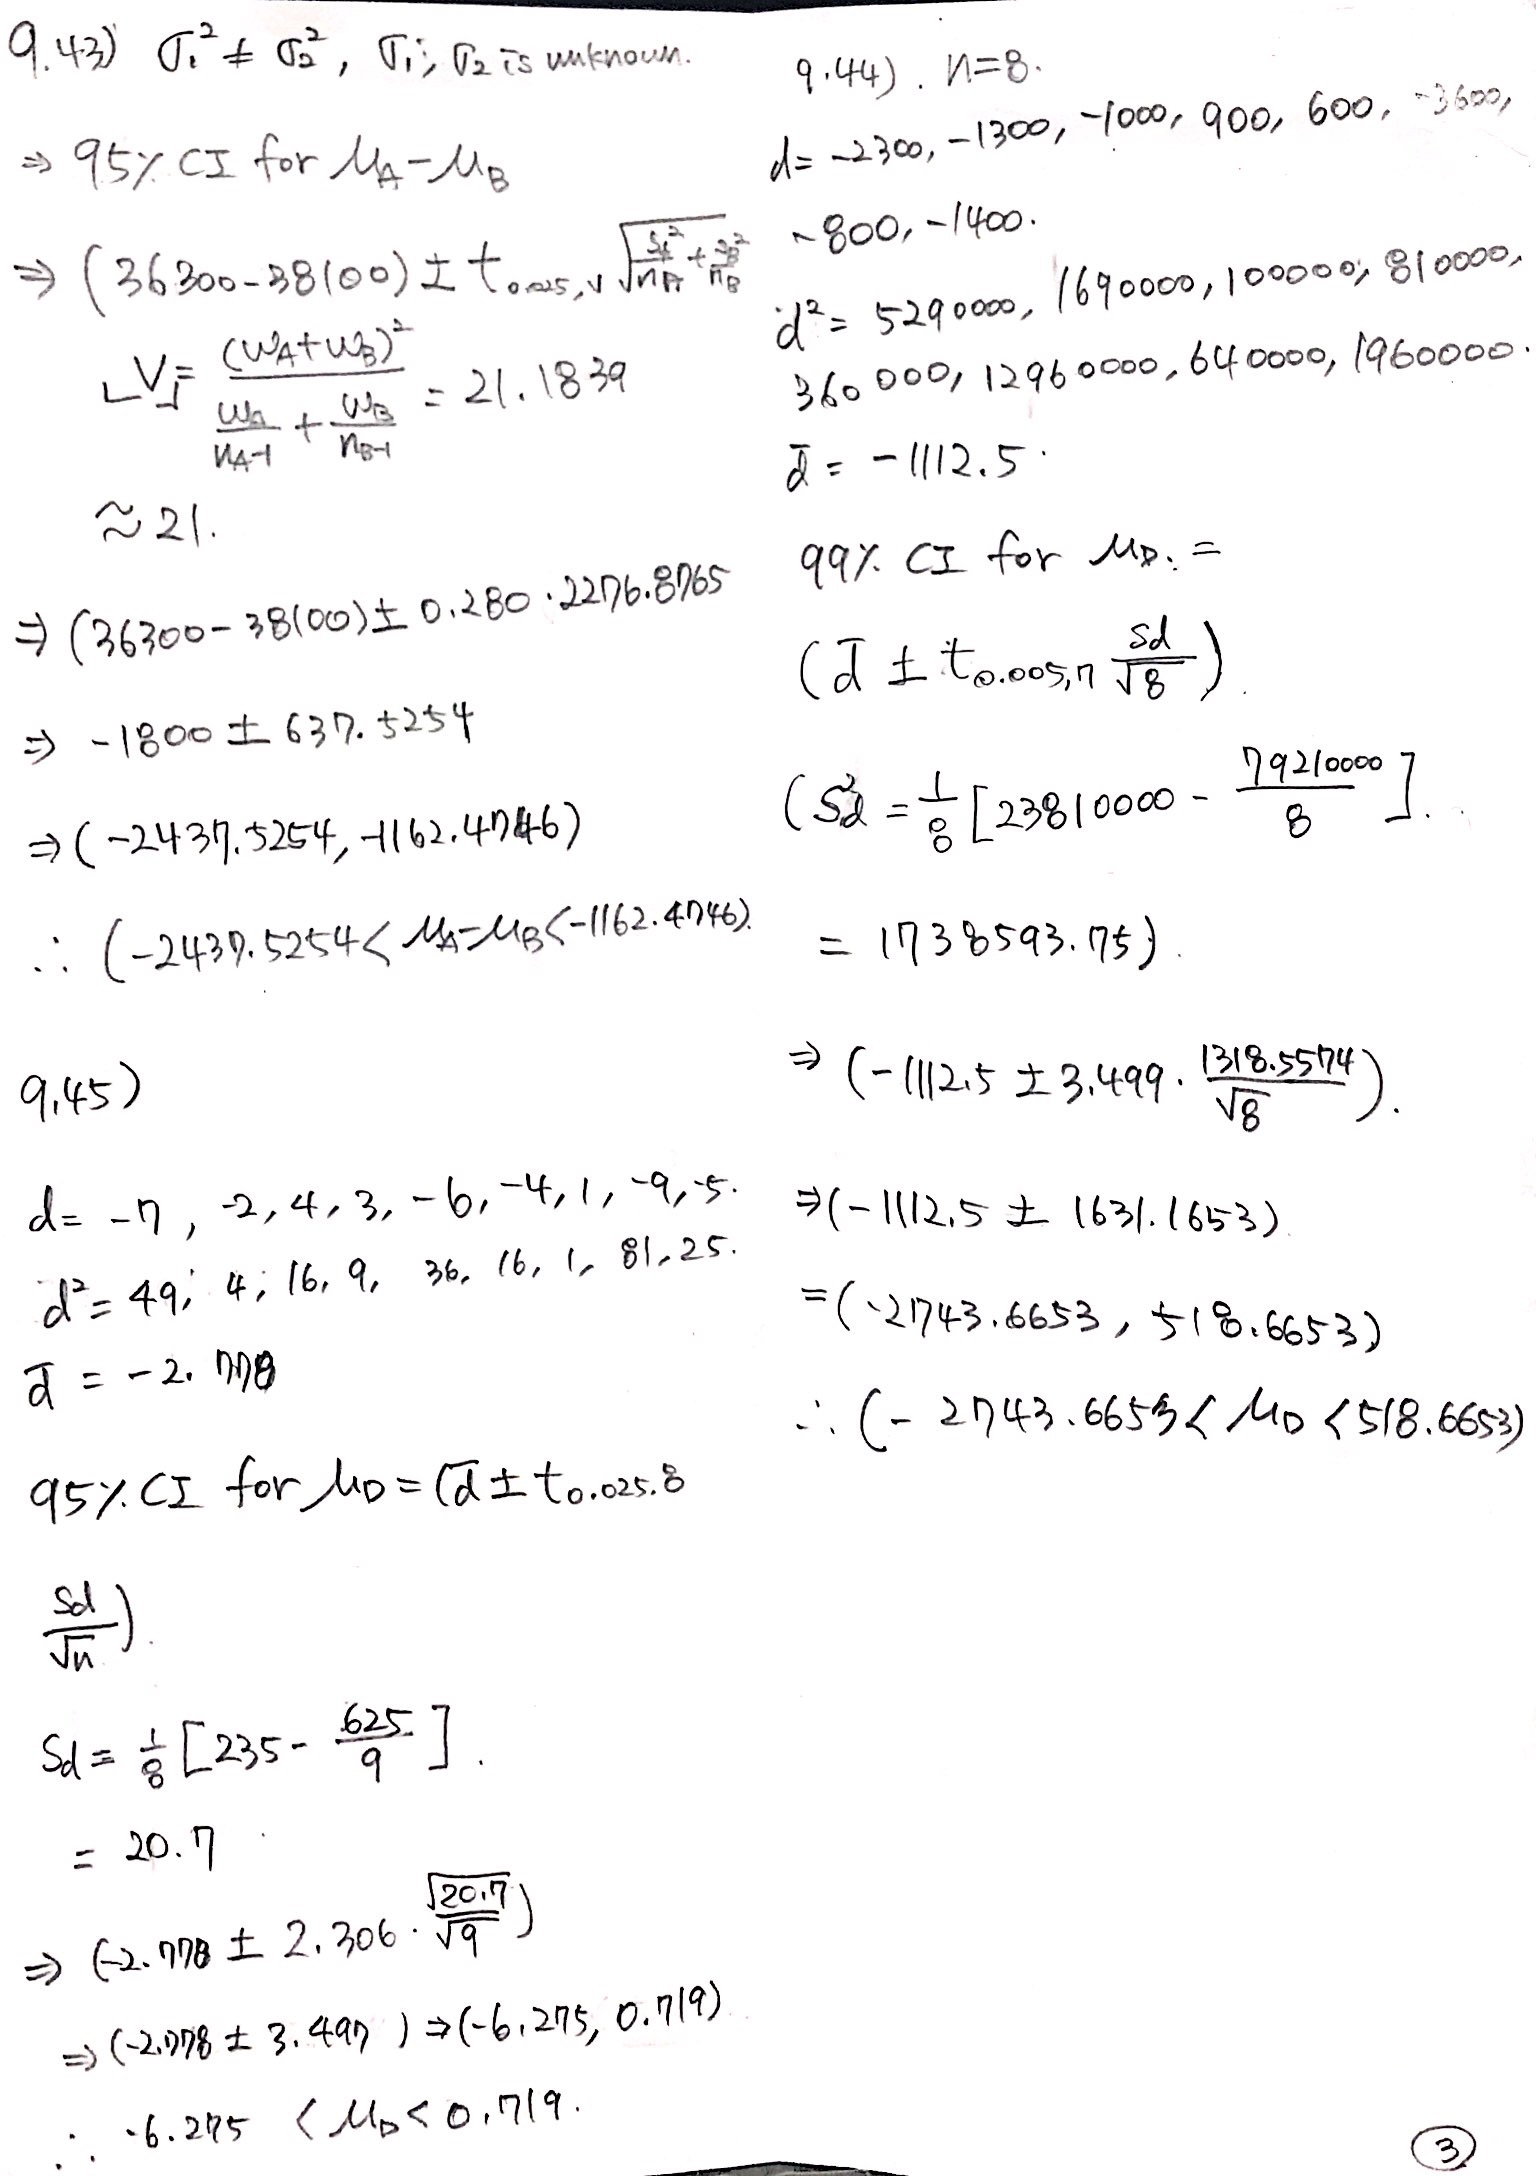 9.43) σ₁² ≠ σ₂², σ₁, σ₂ is unknown.
⇒ 95% CI for μ_A-μ_B
⇒ (36300-38100) ± t_0.025,v √(S_A²/n_A + S_B²/n_B)
⌊V⌋ = (W_A+W_B)² / (W_A/(n_A-1) + W_B/(n_B-1)) = 21.1839
≈ 21.
⇒ (36300-38100) ± 0.280 · 2276.8765
⇒ -1800 ± 637.5254
⇒ (-2437.5254, -1162.4746)
∴ (-2437.5254 < μ_A-μ_B < -1162.4746).
9.45)
d = -7, -2, 4, 3, -6, -4, 1, -9, -5.
d² = 49, 4, 16, 9, 36, 16, 1, 81, 25.
d̄ = -2.778
95% CI for μ_D = (d̄ ± t_0.025.8
Sd/√n).
Sd = 1/8 [235 - 625/9].
= 20.7
⇒ (-2.778 ± 2.306 · √20.7/√9)
⇒ (-2.778 ± 3.497) ⇒ (-6.275, 0.719)
∴ -6.275 < μ_D < 0.719.
9.44). n=8.
d = -2300, -1300, -1000, 900, 600, -3600,
-800, -1400.
d² = 5290000, 1690000, 100000, 810000,
360000, 12960000, 640000, 1960000.
d̄ = -1112.5
99% CI for μ_D. =
(d̄ ± t_0.005,7 Sd/√8).
(S²d = 1/8 [23810000 - 79210000/8].
= 1738593.75).
⇒ (-1112.5 ± 3.499 · 1318.5574/√8).
⇒ (-1112.5 ± 1631.1653)
= (-2743.6653, 518.6653)
∴ (-2743.6653 < μ_D < 518.6653)
3